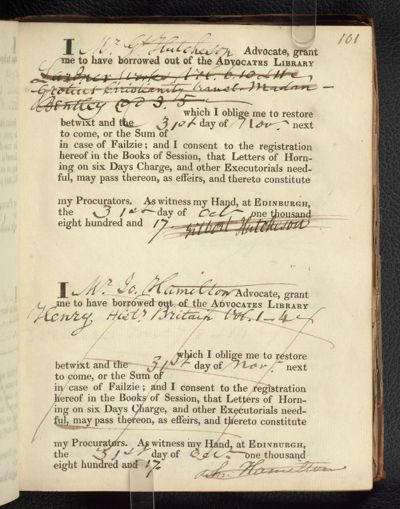 161
I Mr. Gt. Hutcheson Advocate, grant
me to have borrowed out of the ADVOCATES LIBRARY
Lardner Works Vol. 6.10.
Grotius Christianity transl. Madan
Bentley
which I oblige me to restore
betwixt and the 31st day of Novr. next
to come, or the Sum of
in case of Failzie; and I consent to the registration
hereof in the Books of Session, that Letters of Horn-
ing on six Days Charge, and other Executorials need-
ful, may pass thereon, as effeirs, and thereto constitute
my Procurators. As witness my Hand, at EDINBURGH,
the 31st day of Octr. one thousand
eight hundred and 17 Gilbert Hutcheson
I Mr. Jo. Hamilton Advocate, grant
me to have borrowed out of the ADVOCATES LIBRARY
Henry Histy Britain Vol. 1-4
which I oblige me to restore
betwixt and the 31st day of Novr. next
to come, or the Sum of
in case of Failzie; and I consent to the registration
hereof in the Books of Session, that Letters of Horn-
ing on six Days Charge, and other Executorials need-
ful, may pass thereon, as effeirs, and thereto constitute
my Procurators. As witness my Hand, at EDINBURGH,
the 31st day of Octr. one thousand
eight hundred and 17. Jn. Hamilton